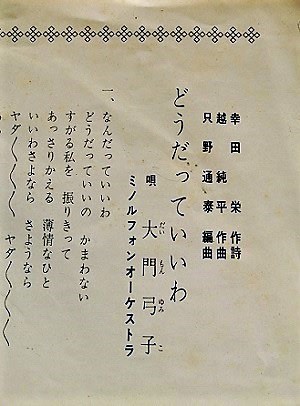 幸田栄作詩
越純平作曲
只野通泰編曲
どうだっていいわ
唄 大門弓子
だいもんゆみこ
ミノルフォンオーケストラ
一、
なんだっていいわ
どうだっていいの かまわない
すがる私を 振りきって
あっさりかえる 薄情なひと
いいわさよなら さようなら
ヤダ〱〱〱 ヤダ〱〱〱